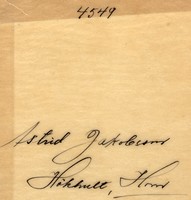 4549
Astrid Jakobsson
Hökhult,